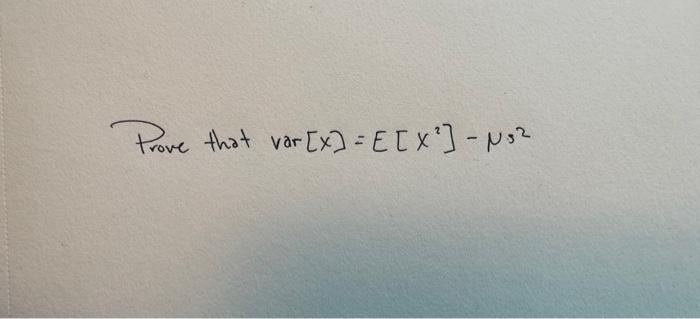 Prove that var[X] = E[X²] - μs²